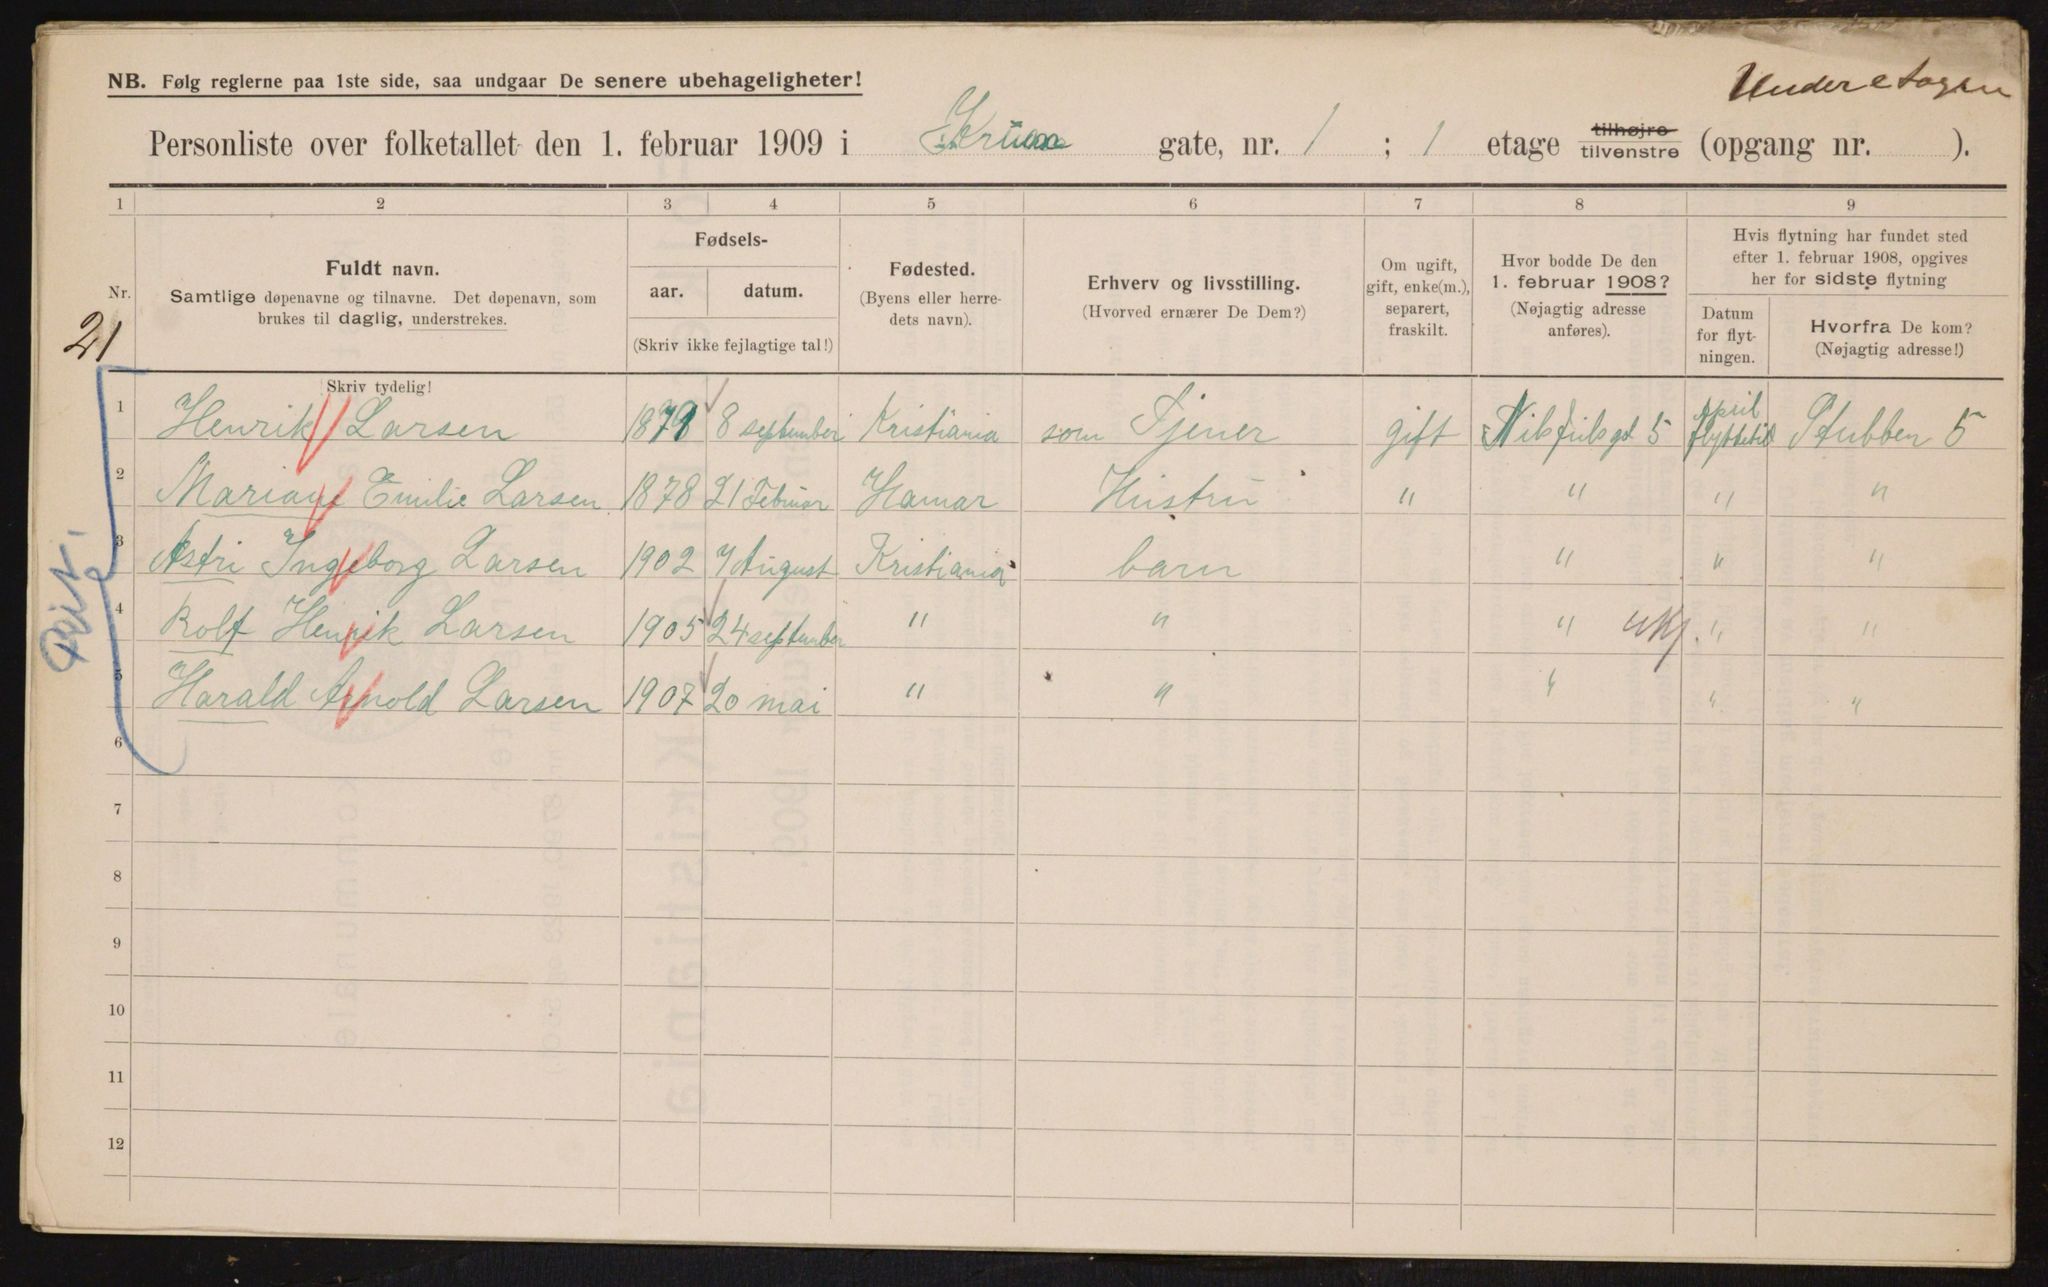 NB. Følg reglerne paa 1ste side, saa undgaar De senere ubehageligheter!
Underetagen
Personliste over folketallet den 1. februar 1909 i gate, nr. 1 ; 1 etage tilhøjre tilvenstre (opgang nr. ).
1 2 3 4 5 6 7 8 9
Nr.
Fuldt navn.
Samtlige døpenavne og tilnavne. Det døpenavn, som
brukes til daglig, understrekes.
Skriv tydelig!
Fødsels-
aar. datum.
(Skriv ikke fejlagtige tal!)
Fødested.
(Byens eller herre-
dets navn).
Erhverv og livsstilling.
(Hvorved ernærer De Dem?)
Om ugift,
gift, enke(m.),
separert,
fraskilt.
Hvor bodde De den
1. februar 1908?
(Nøjagtig adresse
anføres).
Hvis flytning har fundet sted
efter 1. februar 1908, opgives
her for sidste flytning
Datum
for flyt-
ningen.
Hvorfra De kom?
(Nøjagtig adresse!)
21
1 Henrik Larsen 1879 8 september Kristiania som Tjener gift 5 April flyttetid Stubben 5
2 Mariane Emilie Larsen 1878 21 Februar Hamar Hustru " " " "
3 Astri Ingeborg Larsen 1902 7 August Kristiania barn " " "
4 Rolf Henrik Larsen 1905 24 september " " " " "
5 Harald Arnold Larsen 1907 20 mai " " " " "
6
7
8
9
10
11
12